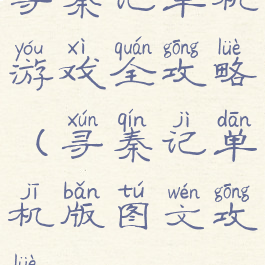 寻秦记单机
yóu xì quán gōng lüè
游戏全攻略
xún qín jì dān
（寻秦记单
jī bǎn tú wén gōng
机版图文攻
lüè